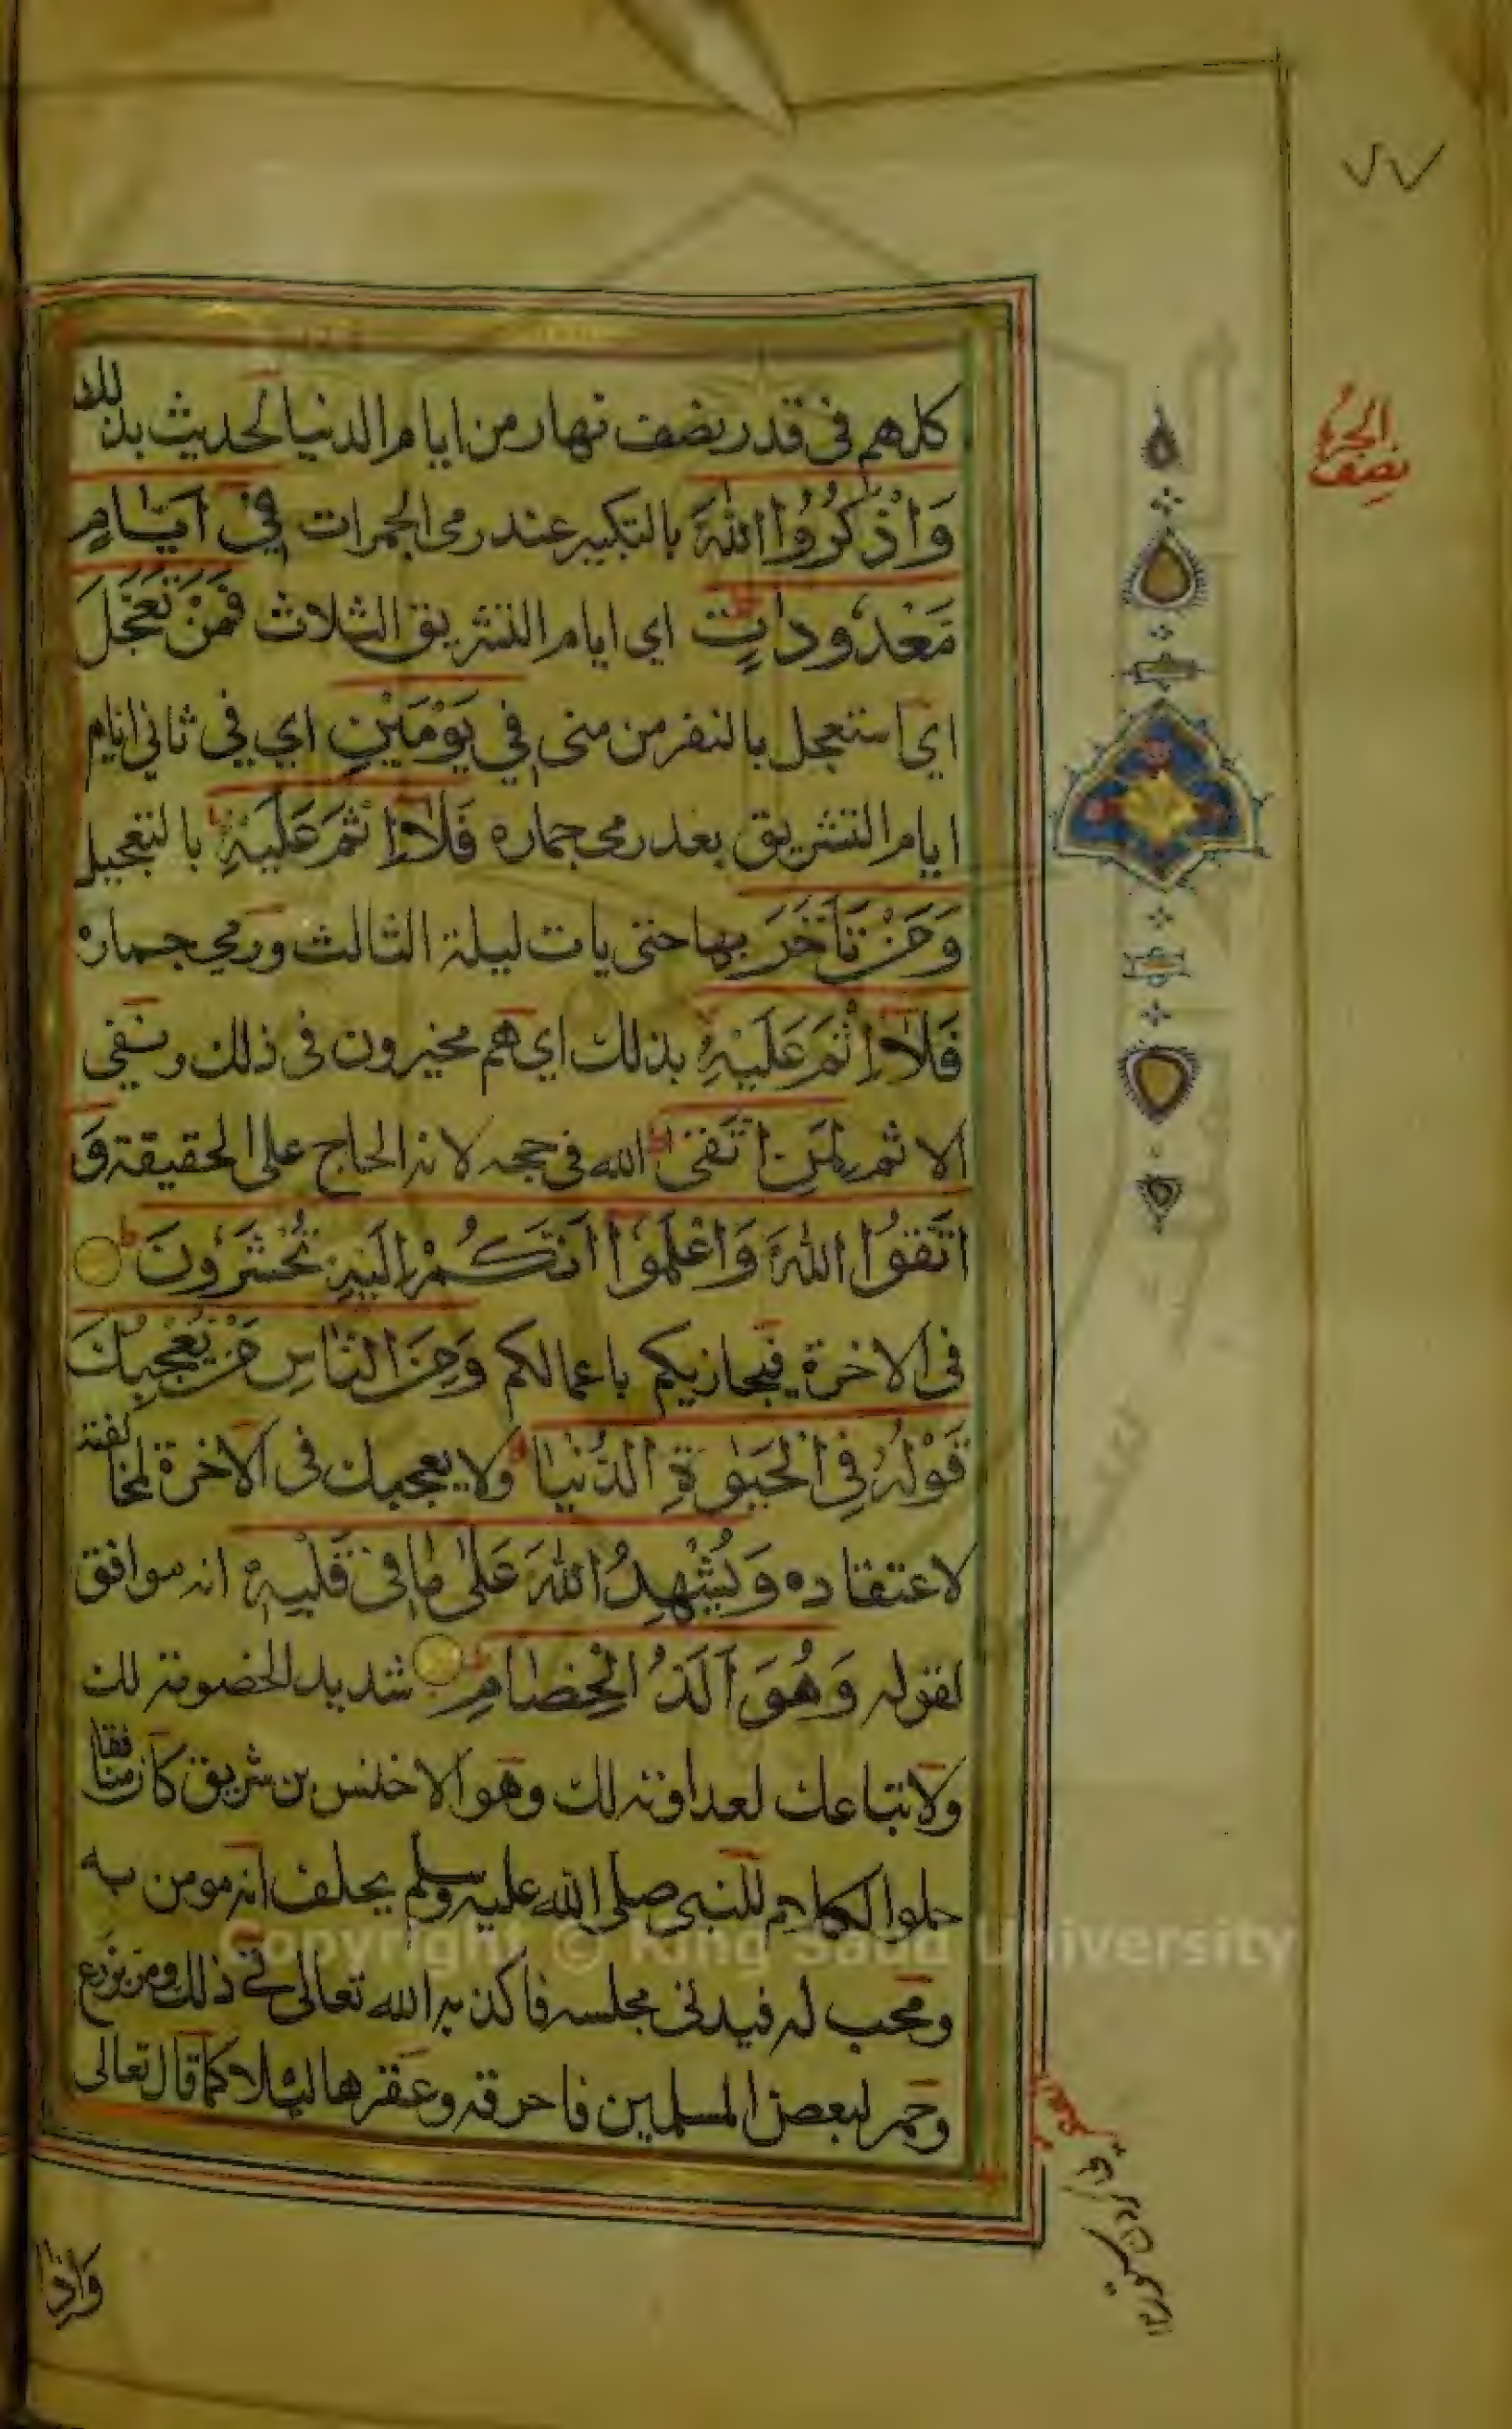 ٧٧
نصف
الجزء
كلهم في قدر نصف نهار من ايام الدنيا لحديث بذلك
وَاذْكُرُوا اللّٰهَ بالتكبير عند رمي الجمرات فِيْ اَيَّامٍ
مَعْدُودٰتٍ اي ايام التشريق الثلاث فَمَنْ تَعَجَّلَ
اي استعجل بالنفر من منى فِي يَوْمَيْنِ اي في ثاني ايام
ايام التشريق بعد رمي جماره فَلَا اِثْمَ عَلَيْهِ بالتعجيل
وَمَنْ تَاَخَّرَ بها حتى بات ليلة الثالث ورمي جماره
فَلَا اِثْمَ عَلَيْهِ بذلك اي هم مخيرون في ذلك ونفي
الاثم لِمَنِ اتَّقٰى الله في حجه لانه الحاج على الحقيقة وَ
اتَّقُوا اللّٰهَ وَاعْلَمُوا اَنَّكُمْ اِلَيْهِ تُحْشَرُونَ
في الاخرة فيجازيكم باعمالكم وَمِنَ النَّاسِ مَنْ يُعْجِبُكَ
قَوْلُهُ فِي الْحَيٰوةِ الدُّنْيَا ولا يعجبك في الاخرة لمخالفته
لاعتقاده وَيُشْهِدُ اللّٰهَ عَلٰى مَا فِيْ قَلْبِهٖ انه موافق
لقوله وَهُوَ اَلَدُّ الْخِصَامِ شديد الخصومة لك
ولاتباعك لعداوته لك وهو الاخنس بن شريق كان منافقا
حلو الكلام للنبي صلى الله عليه وسلم يحلف انه مومن به
ومحب له فيدني مجلسه فاكذبه الله تعالى في ذلك ومر بزرع
وحمر لبعض المسلمين فاحرقه وعقرها ليلا كما قال تعالى
واذا
Copyright © King Saud University